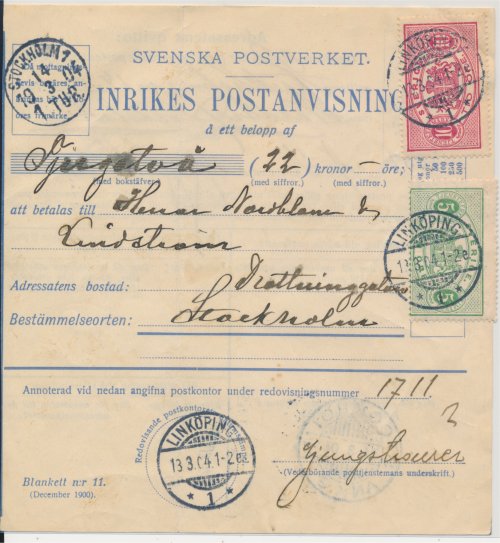 SVENSKA POSTVERKET.
INRIKES POSTANVISNING
å ett belopp af
Tjugotvå (22) kronor — öre;
(med bokstäfver) (med siffror.) (med siffror.)
att betalas till Herrar Nordblom &
Lindström
Adressatens bostad: Drottninggatan
Bestämmelseorten: Stockholm
Annoterad vid nedan angifna postkontor under redovisningsnummer 1711
Redovisande postkontoret
LINKÖPING
13.3.04.1-2
1
(Vederbörande posttjenstemans underskrift.)
Blankett n:r 11.
(December 1900.)
STOCKHOLM 1
LINKÖPING
1
10
LINKÖPING
13.3.04.1-2
5 5